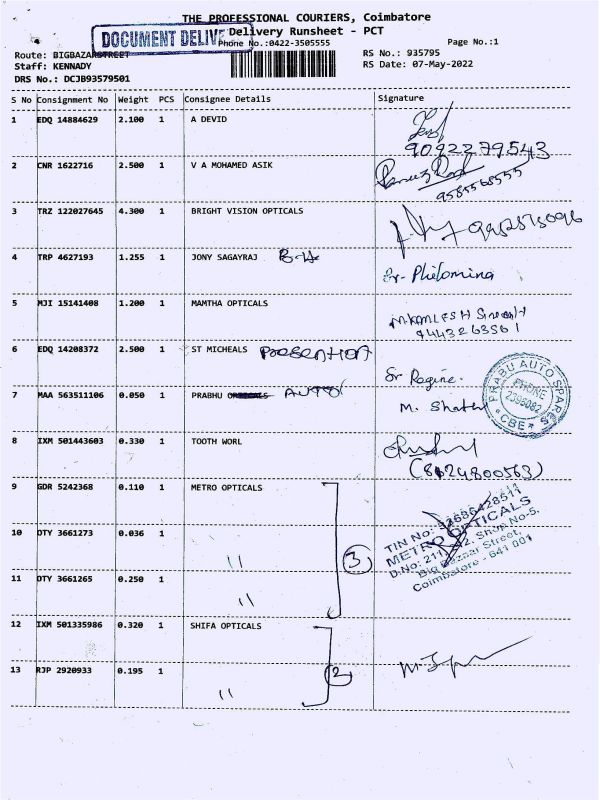 THE PROFESSIONAL COURIERS, Coimbatore
DOCUMENT DELIVE
Delivery Runsheet - PCT
Phone No.:0422-3505555
Page No.:1
Route: BIGBAZARSTREET
RS No.: 935795
Staff: KENNADY
RS Date: 07-May-2022
DRS No.: DCJB93579501
S No Consignment No Weight PCS Consignee Details Signature
1 EDQ 14884629 2.100 1 A DEVID
9092279543
2 CNR 1622716 2.500 1 V A MOHAMED ASIK
9585568555
3 TRZ 122027645 4.300 1 BRIGHT VISION OPTICALS
4 TRP 4627193 1.255 1 JONY SAGAYRAJ
Sr- Philomina
5 MJI 15141408 1.200 1 MAMTHA OPTICALS
M.KAMLESH Singh
9443263561
6 EDQ 14208372 2.500 1 ST MICHEALS PRESENTATION
Sr Regine.
7 MAA 563511106 0.050 1 PRABHU AUTO
M. Shathi
PRABU AUTO SPARES
PHONE
2396082
* CBE *
8 IXM 501443603 0.330 1 TOOTH WORL
(8124800563)
9 GDR 5242368 0.110 1 METRO OPTICALS
10 OTY 3661273 0.036 1 "
3
11 OTY 3661265 0.250 1 "
TIN No: 33686428511
METRO OPTICALS
D.No: 211, 212, Shop No-5,
Big Bazaar Street,
Coimbatore - 641 001
12 IXM 501335986 0.320 1 SHIFA OPTICALS
2
13 RJP 2920933 0.195 1 "